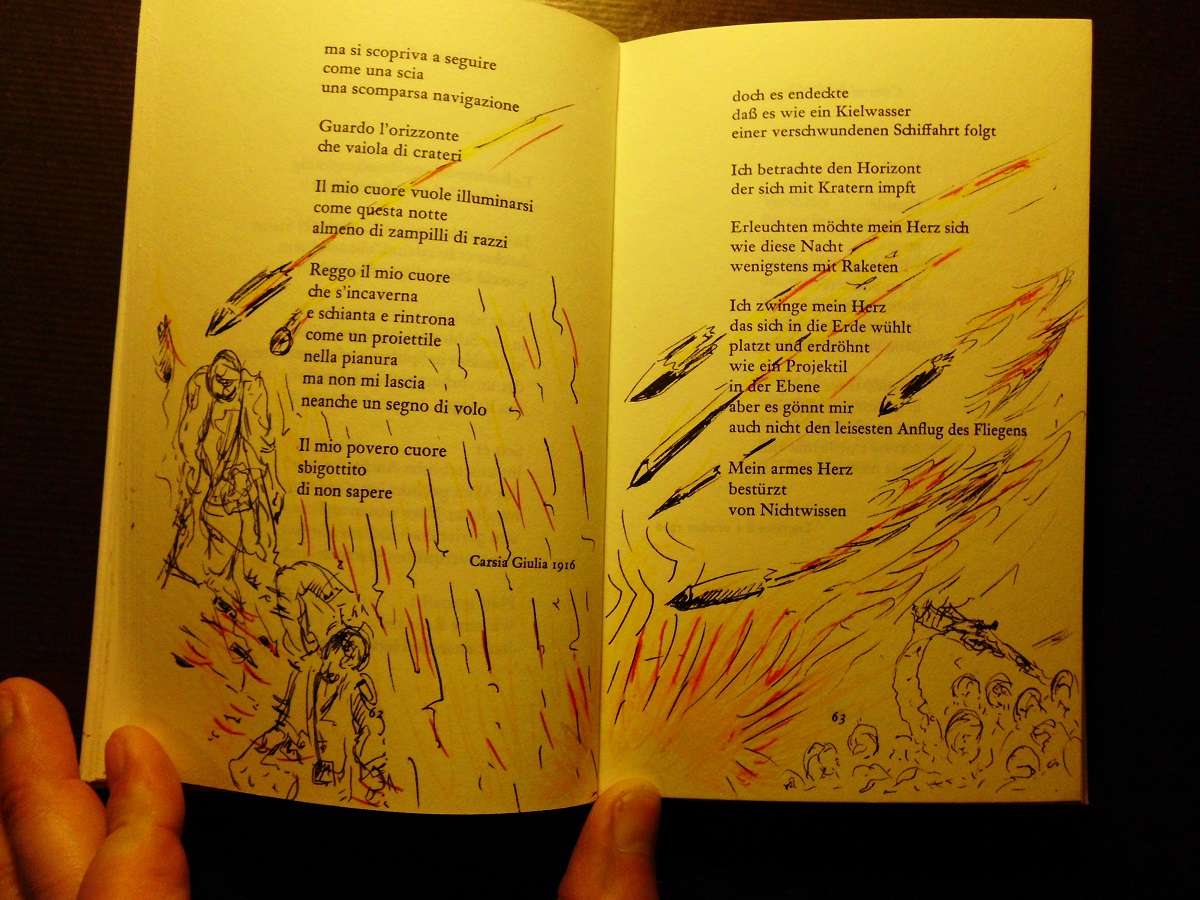 ma si scopriva a seguire
come una scia
una scomparsa navigazione
Guardo l'orizzonte
che vaiola di crateri
Il mio cuore vuole illuminarsi
come questa notte
almeno di zampilli di razzi
Reggo il mio cuore
che s'incaverna
e schianta e rintrona
come un proiettile
nella pianura
ma non mi lascia
neanche un segno di volo
Il mio povero cuore
sbigottito
di non sapere
Carsia Giulia 1916
62
doch es endeckte
daß es wie ein Kielwasser
einer verschwundenen Schiffahrt folgt
Ich betrachte den Horizont
der sich mit Kratern impft
Erleuchten möchte mein Herz sich
wie diese Nacht
wenigstens mit Raketen
Ich zwinge mein Herz
das sich in die Erde wühlt
platzt und erdröhnt
wie ein Projektil
in der Ebene
aber es gönnt mir
auch nicht den leisesten Anflug des Fliegens
Mein armes Herz
bestürzt
von Nichtwissen
63